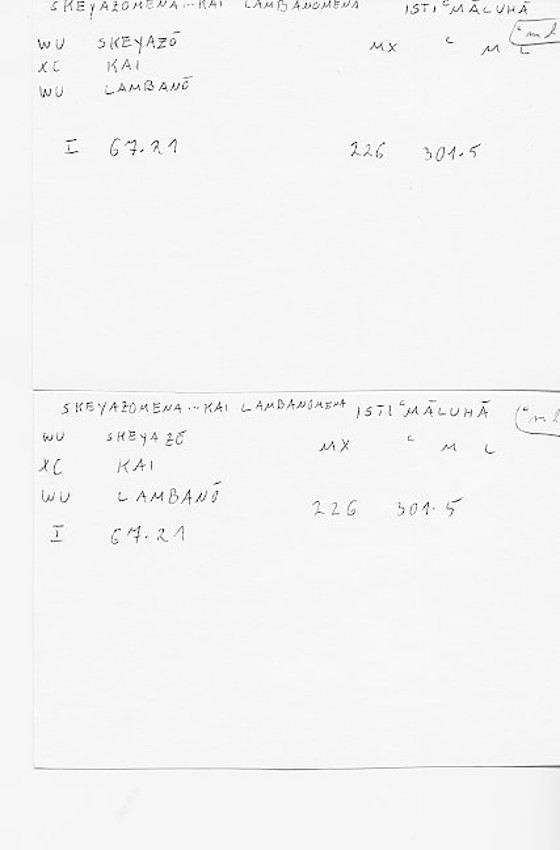 SKEYAZOMENA...KAI LAMBANOMENA ISTIʿMĀLUHĀ
WU SKEYAZŌ MX ʿ M L
XC KAI
WU LAMBANŌ
I 67.21 226 301.5
SKEYAZOMENA...KAI LAMBANOMENA ISTIʿMĀLUHĀ
WU SKEYAZŌ MX ʿ M L
XC KAI
WU LAMBANŌ 226 301.5
I 67.21